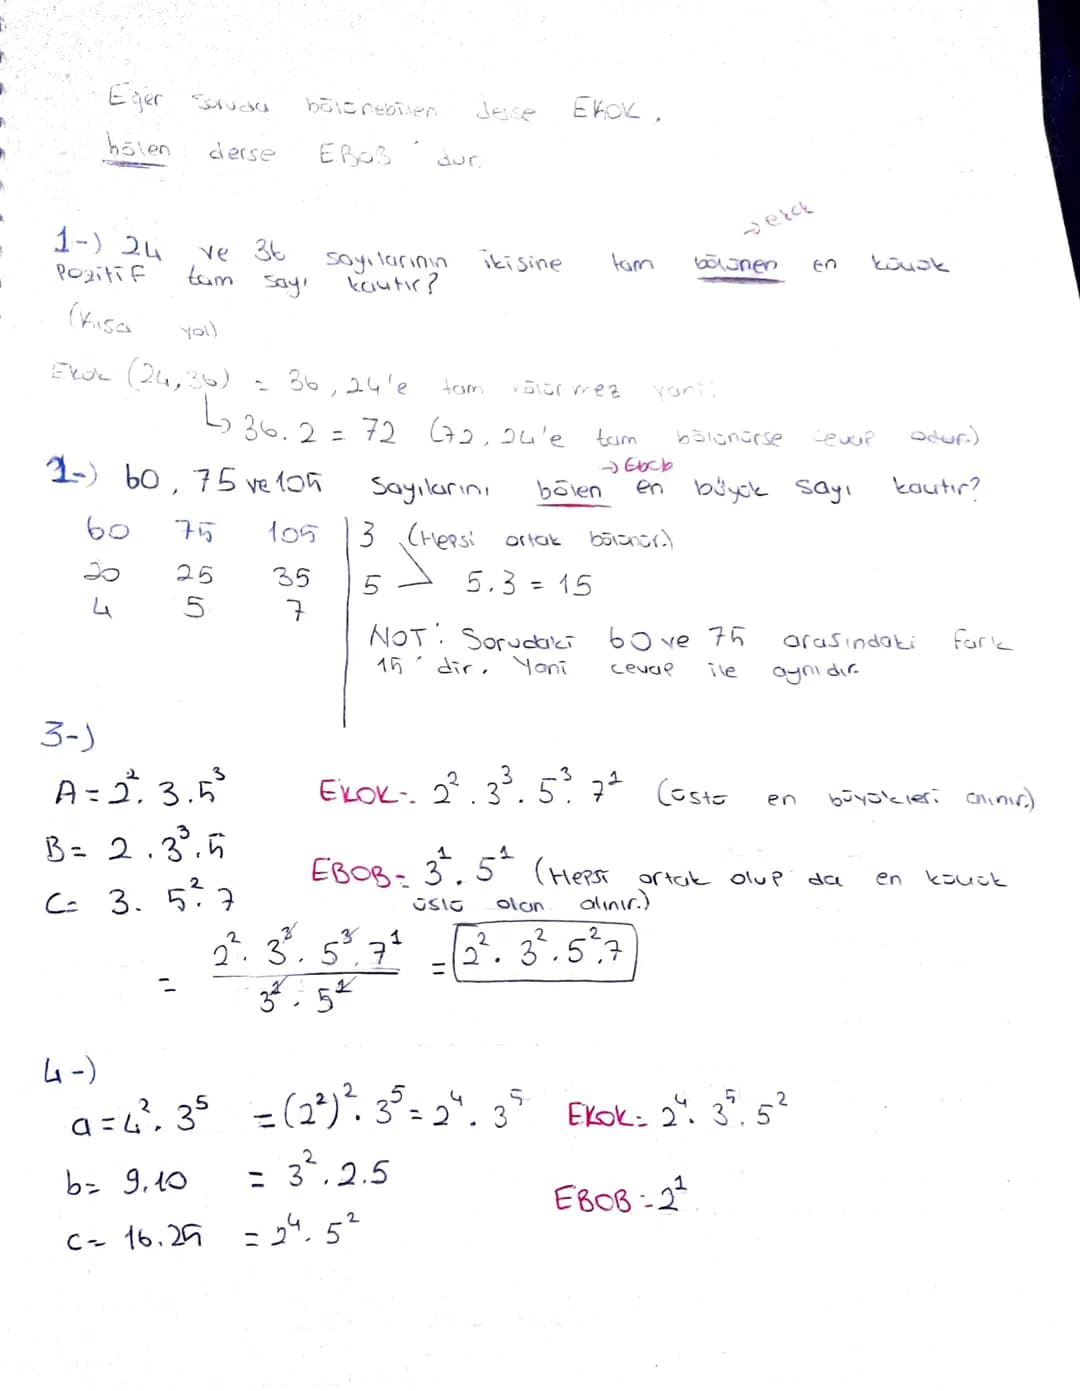 Eğer soruda bölünebilen derse EKOK,
bölen derse EBOB'dur.
→ ekok
1-) 24 ve 36 sayılarının ikisine tam bölünen en küçük
Pozitif tam sayı kaçtır?
(Kısa yol)
Ekok (24,36) = 36, 24'e tam bölünmez yani:
↳ 36.2 = 72 (72, 24'e tam bölünürse cevap odur.)
→ Ebob
2-) 60, 75 ve 105 sayılarını bölen en büyük sayı kaçtır?
60 75 105 | 3 (Hepsi ortak bölünür.)
20 25 35 | 5 > 5.3 = 15
4 5 7
NOT: Sorudaki 60 ve 75 arasındaki fark
15'dir. Yani cevap ile aynıdır.
3-)
A = 2². 3.5³ EKOK: 2². 3³. 5³. 7¹ (üstü en büyükleri alınır.)
B = 2 . 3³. 5
C = 3. 5². 7 EBOB = 3¹. 5¹ (Hepsi ortak olup da en küçük
üslü olan alınır.)
= 2². 3³. 5³. 7¹ / 3¹. 5¹ = 2². 3². 5². 7
4-)
a = 4². 3⁵ = (2²)². 3⁵ = 2⁴. 3⁵ EKOK = 2⁴. 3⁵. 5²
b = 9.10 = 3². 2.5
EBOB = 2¹
c = 16.25 = 2⁴. 5²